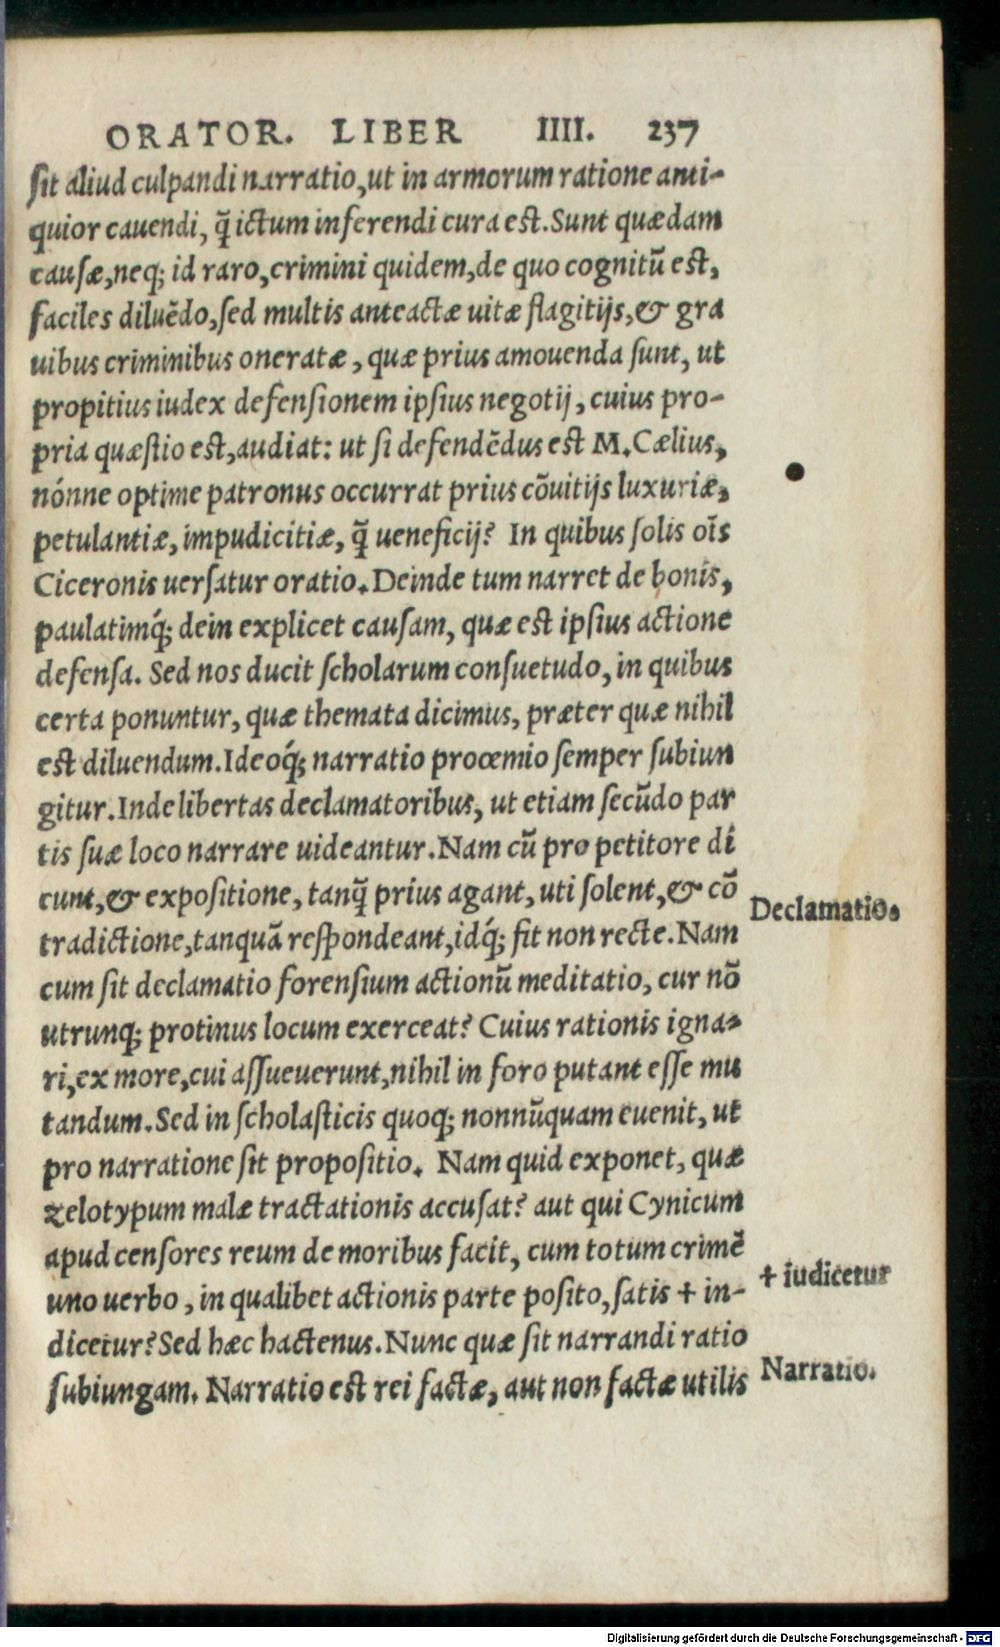 ORATOR. LIBER IIII. 237
sit aliud culpandi narratio, ut in armorum ratione anti-
quior cauendi, q̃ ictum inferendi cura est. Sunt quædam
causæ, neq; id raro, crimini quidem, de quo cognitũ est,
faciles diluẽdo, sed multis anteactæ uitæ flagitijs, & gra
uibus criminibus oneratæ, quæ prius amouenda sunt, ut
propitius iudex defensionem ipsius negotij, cuius pro-
pria quæstio est, audiat: ut si defendẽdus est M. Cælius,
nónne optime patronus occurrat prius cõuitijs luxuriæ,
petulantiæ, impudicitiæ, q̃ ueneficij? In quibus solis oĩs
Ciceronis uersatur oratio. Deinde tum narret de bonis,
paulatimq́; dein explicet causam, quæ est ipsius actione
defensa. Sed nos ducit scholarum consuetudo, in quibus
certa ponuntur, quæ themata dicimus, præter quæ nihil
est diluendum. Ideoq́; narratio proœmio semper subiun
gitur. Inde libertas declamatoribus, ut etiam secũdo par
tis suæ loco narrare uideantur. Nam cũ pro petitore di
cunt, & expositione, tanq̃ prius agant, uti solent, & cõ
tradictione, tanquã respondeant, idq́; fit non recte. Nam
Declamatio.
cum sit declamatio forensium actionũ meditatio, cur nõ
utrunq; protinus locum exerceat? Cuius rationis igna-
ri, ex more, cui assueuerunt, nihil in foro putant esse mu
tandum. Sed in scholasticis quoq; nonnũquam euenit, ut
pro narratione sit propositio. Nam quid exponet, quæ
zelotypum malæ tractationis accusat? aut qui Cynicum
apud censores reum de moribus facit, cum totum crimẽ
uno uerbo, in qualibet actionis parte posito, satis + in-
+ iudicetur
dicetur? Sed hæc hactenus. Nunc quæ sit narrandi ratio
subiungam. Narratio est rei factæ, aut non factæ utilis
Narratio.
Digitalisierung gefördert durch die Deutsche Forschungsgemeinschaft - DFG